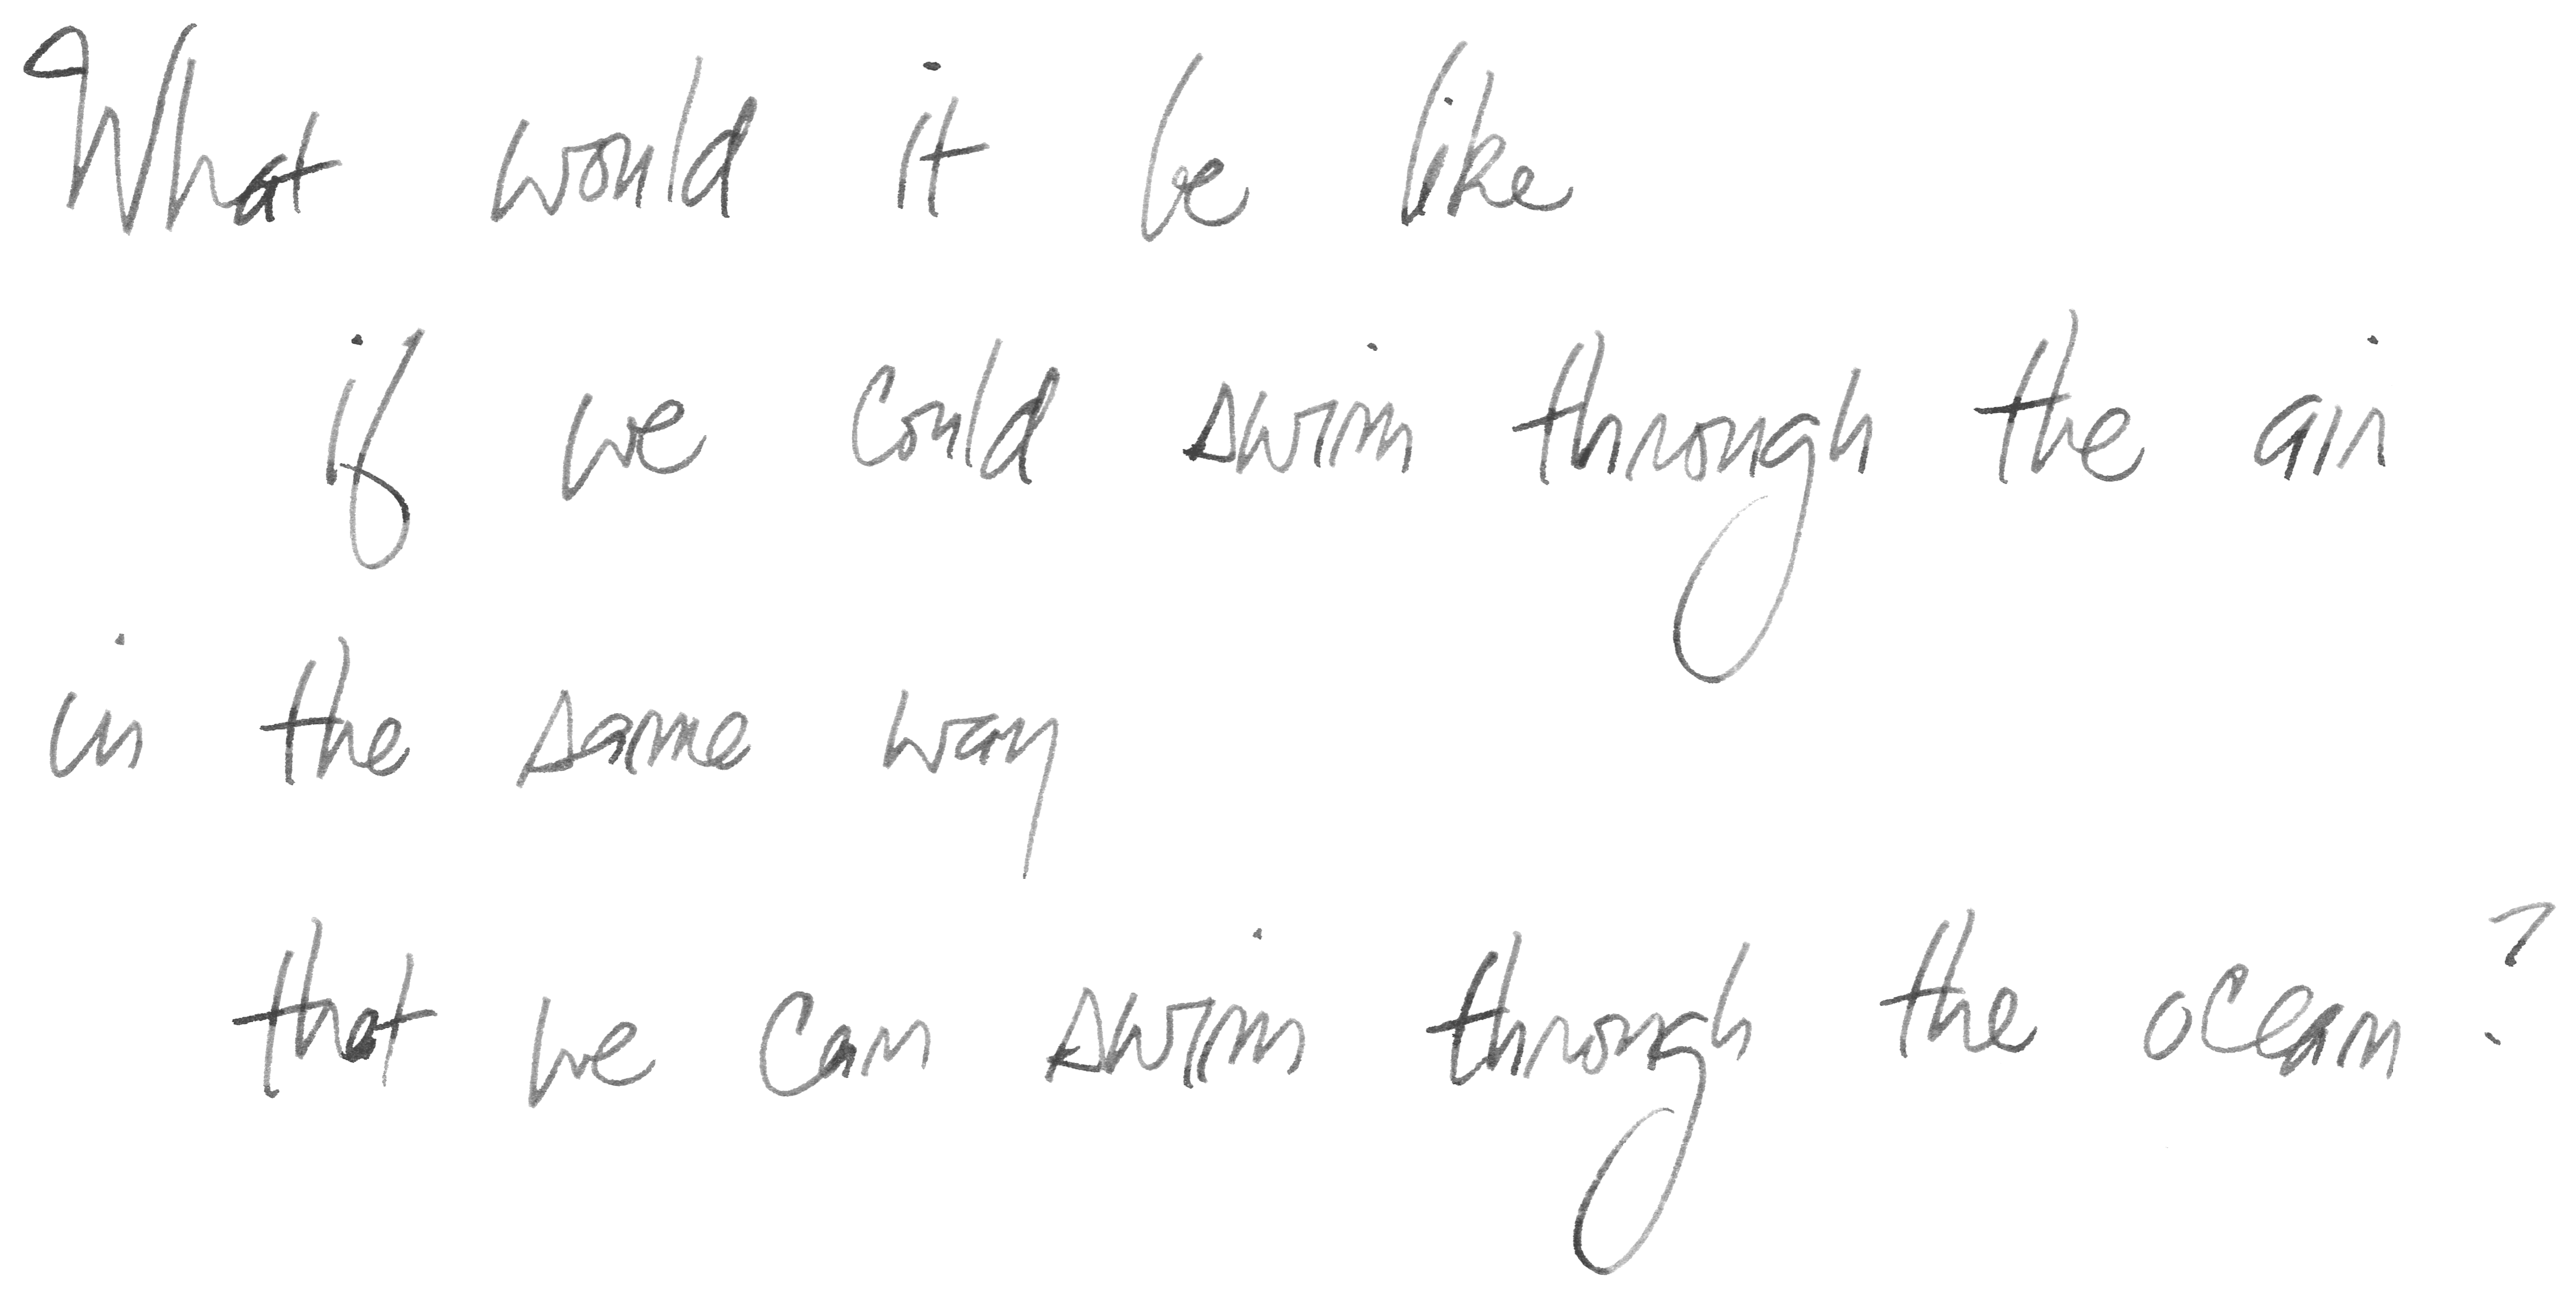 What would it be like
if we could swim through the air
in the same way
that we can swim through the ocean?